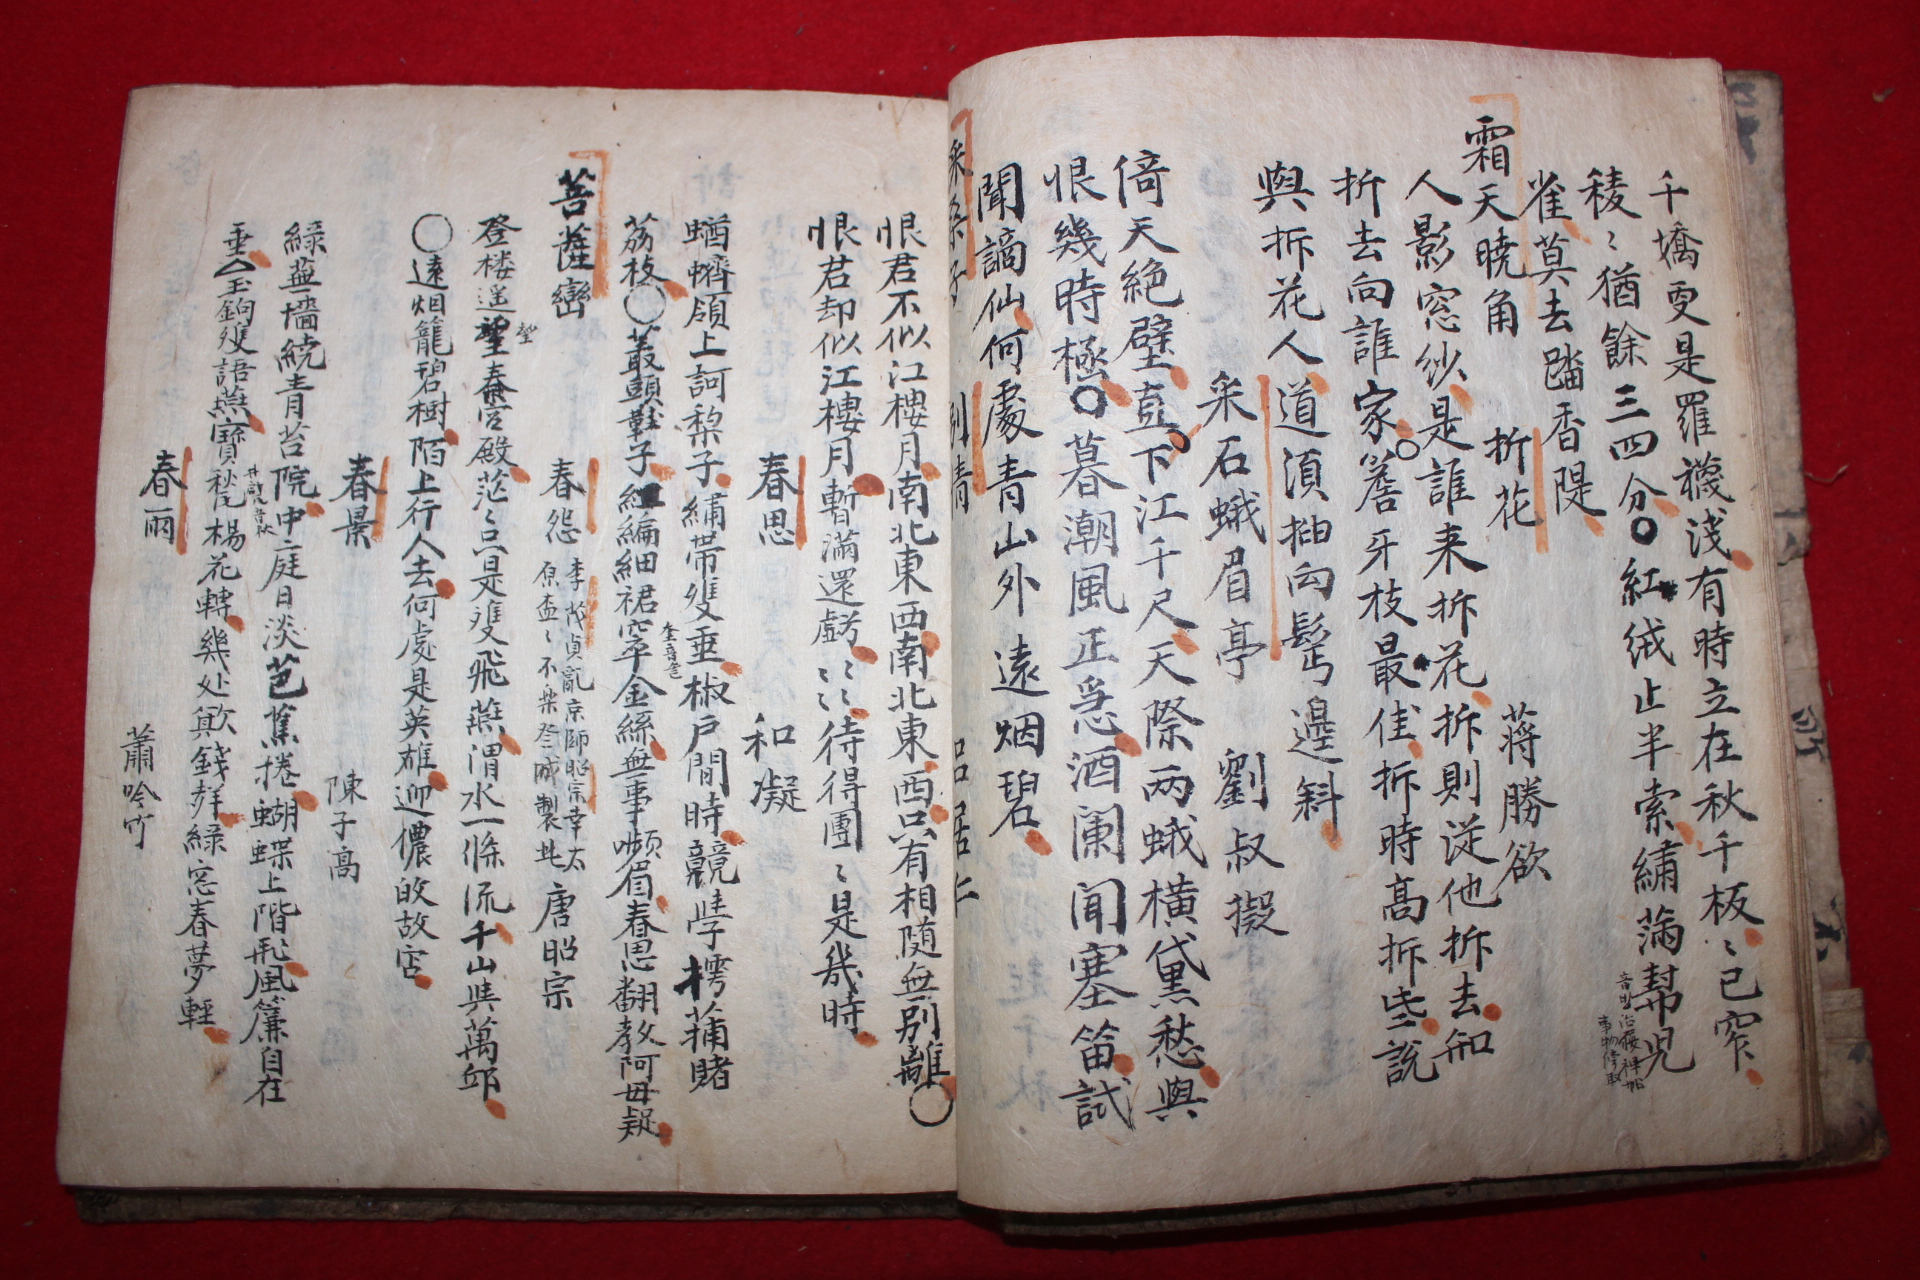 千嬌更是羅襪淺有時立在秋千板〻已窄
稜〻猶餘三四分〇紅絨止半索繡滿幫児
雀莫去踏香隄
霜天曉角 折花 蔣勝欲
人影窓紗是誰来折花折則従他折去知
折去向誰家〇簷牙枝最佳折時高折些說
與折花人道須挿向鬓邊斜
采石蛾眉亭 劉叔擬
倚天絶壁直下江千尺天際两蛾横黛愁與
恨幾時極〇暮潮風正急酒闌聞塞笛試
問謫仙何處青山外遠烟碧
采桒子 別情 呂居仁
恨君不似江樓月南北東西南北東西只有相随無别離〇
恨君却似江樓月暫滿還虧〻〻待得團〻是幾時
春思 和凝
蝤蠐領上訶梨子繡帶雙垂椒戶間時競學樗蒱賭
荔枝〇叢頭鞋子紅編細裙窣金絲無事嚬眉春思翻教阿母疑
菩薩蠻
春怨 李茂貞亂京師昭宗幸太原盃〻不樂登城製此 唐昭宗
登楼遥望秦宫殿茫〻只是雙飛燕渭水一條流千山與萬邱
〇遠烟籠碧樹陌上行人去何處是英雄迎儂歸故宮
春景 陳子高
緑蕪墻繞青苔院中庭日淡芭蕉捲蝴蝶上階飛風簾自在
垂玉鉤雙語燕寶甃楊花轉幾处欤錢聲緑窓春夢輕
春雨 蕭吟竹